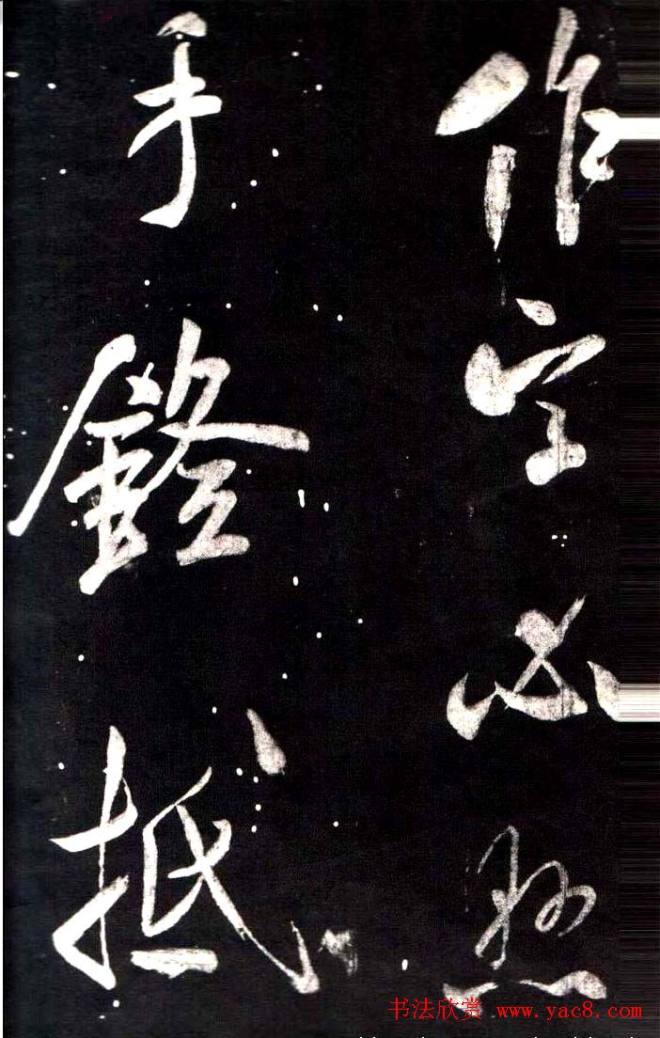 作字必懸
手鐙抵
书法欣赏 www.yac8.com